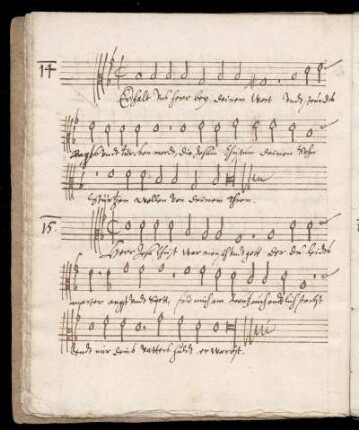 14
Erhalt uns herr bey deinem Wort undt steur des
Bapsts undt Türcken mordt, die Jesum Christum deinen Sohn
Stürtzen wollen von deinem Thron.
15.
Herr Jesu Christ war mensch undt gott der du leidest
marter angst undt Spott, für mich am Creutz auch endtlich starbst
Undt mir deins Vatters huldt erwarbst.